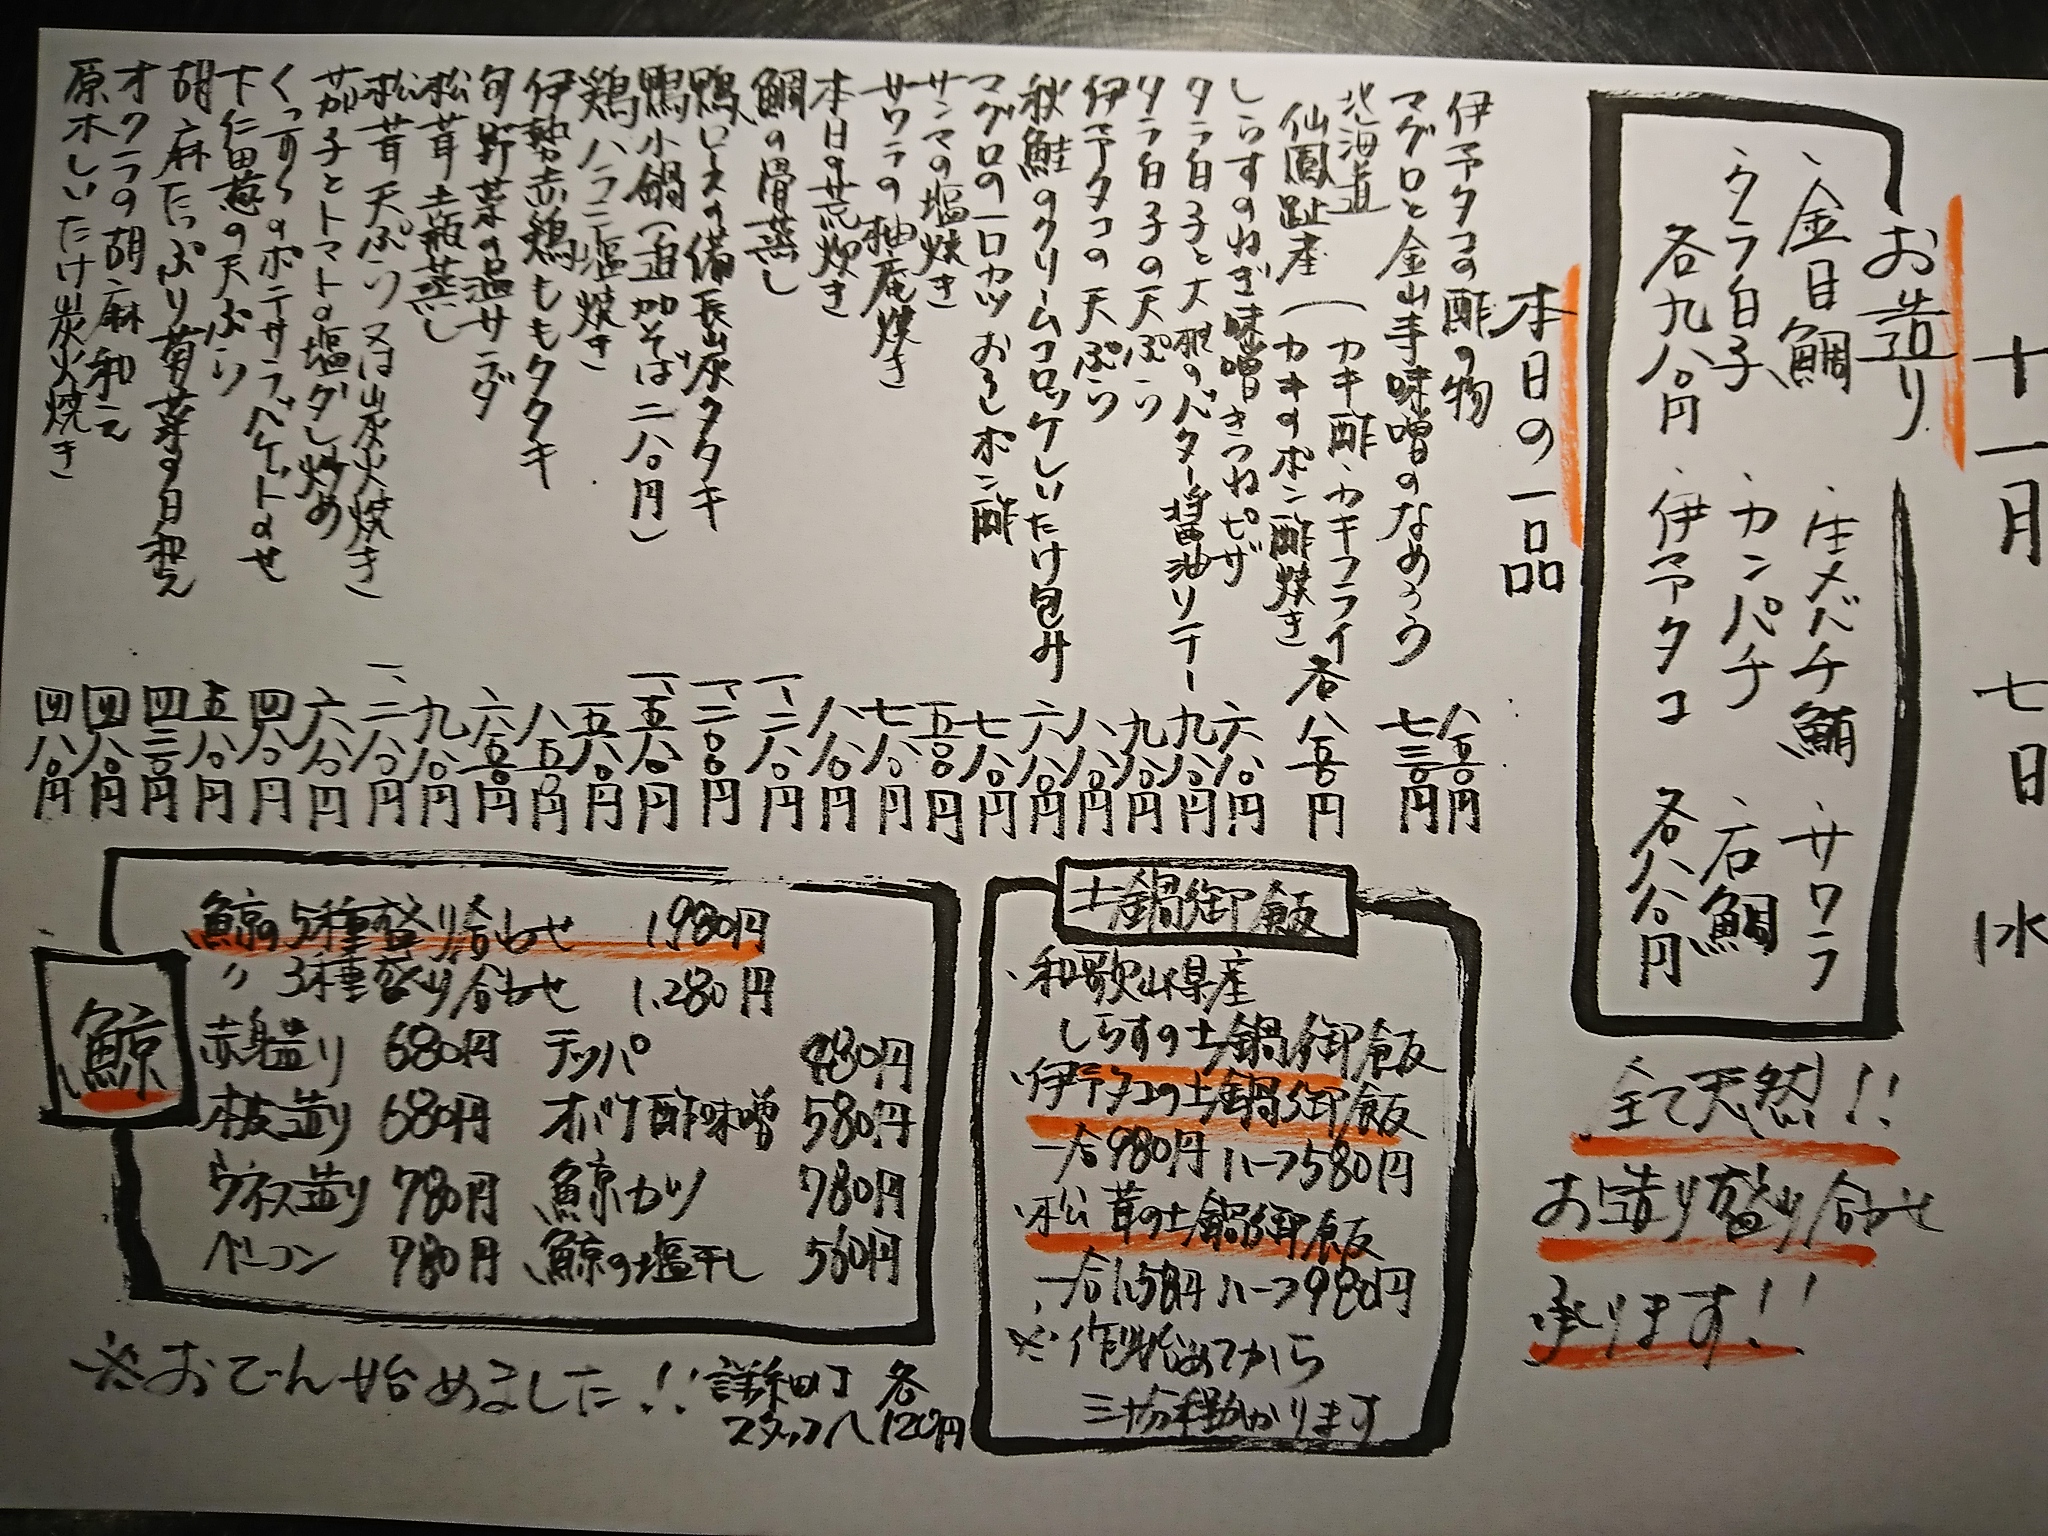 十一月七日水
お造り
・金目鯛 ・生メバチ鮪 ・サワラ
・タラ白子 ・カンパチ ・石鯛
各九八〇円 ・伊予タコ 各八八〇円
全て天然!!
お造り盛り合わせ
承ります!!
本日の一品
伊予タコの酢の物 八五〇円
マグロと金山寺味噌のなめろう 七三〇円
北海道
仙鳳趾産(カキ酢・カキフライ
(カキのポン酢焼き 各八五〇円
しらすのねぎ味噌きつねピザ 六八〇円
タラ白子と大根のバター醤油ソテー 九八〇円
タラ白子の天ぷら 九八〇円
伊予タコの天ぷら 八八〇円
秋鮭のクリームコロッケしいたけ包み 六八〇円
マグロの一口カツおろしポン酢 七八〇円
サンマの塩焼き 五八〇円
サワラの柚庵焼き 七八〇円
本日の荒炊き 八八〇円
鯛の骨蒸し 一、二八〇円
鴨ロースの備長炭タタキ 一、二〇〇円
鴨小鍋(追加そば二八〇円) 一、五八〇円
鶏ハラミ塩焼き 五八〇円
伊勢赤鶏ももタタキ 八五〇円
旬野菜の温サラダ 六五〇円
松茸土瓶蒸し 九八〇円
松茸天ぷら又は炭火焼き 一、二八〇円
茄子とトマトの塩ダレ炒め 六八〇円
くっすんのポテサラバゲットのせ 四八〇円
下仁田葱の天ぷら 五八〇円
胡麻たっぷり菊菜の白和え 四三〇円
オクラの胡麻和え 四八〇円
原木しいたけ炭火焼き 四八〇円
土鍋御飯
・和歌山県産
しらすの土鍋御飯
・伊予タコの土鍋御飯
一合980円ハーフ580円
・松茸の土鍋御飯
一合1,580円ハーフ980円
※作り始めてから
三十分程かかります
鯨
鯨の5種盛り合わせ 1,980円
〃3種盛り合わせ 1,280円
赤身造り 680円 テッパ 480円
本皮造り 680円 オバケ酢味噌 580円
ウネス造り 780円 鯨カツ 780円
ベーコン 780円 鯨の塩干し 560円
※おでん始めました!!詳細はスタッフへ 各120円